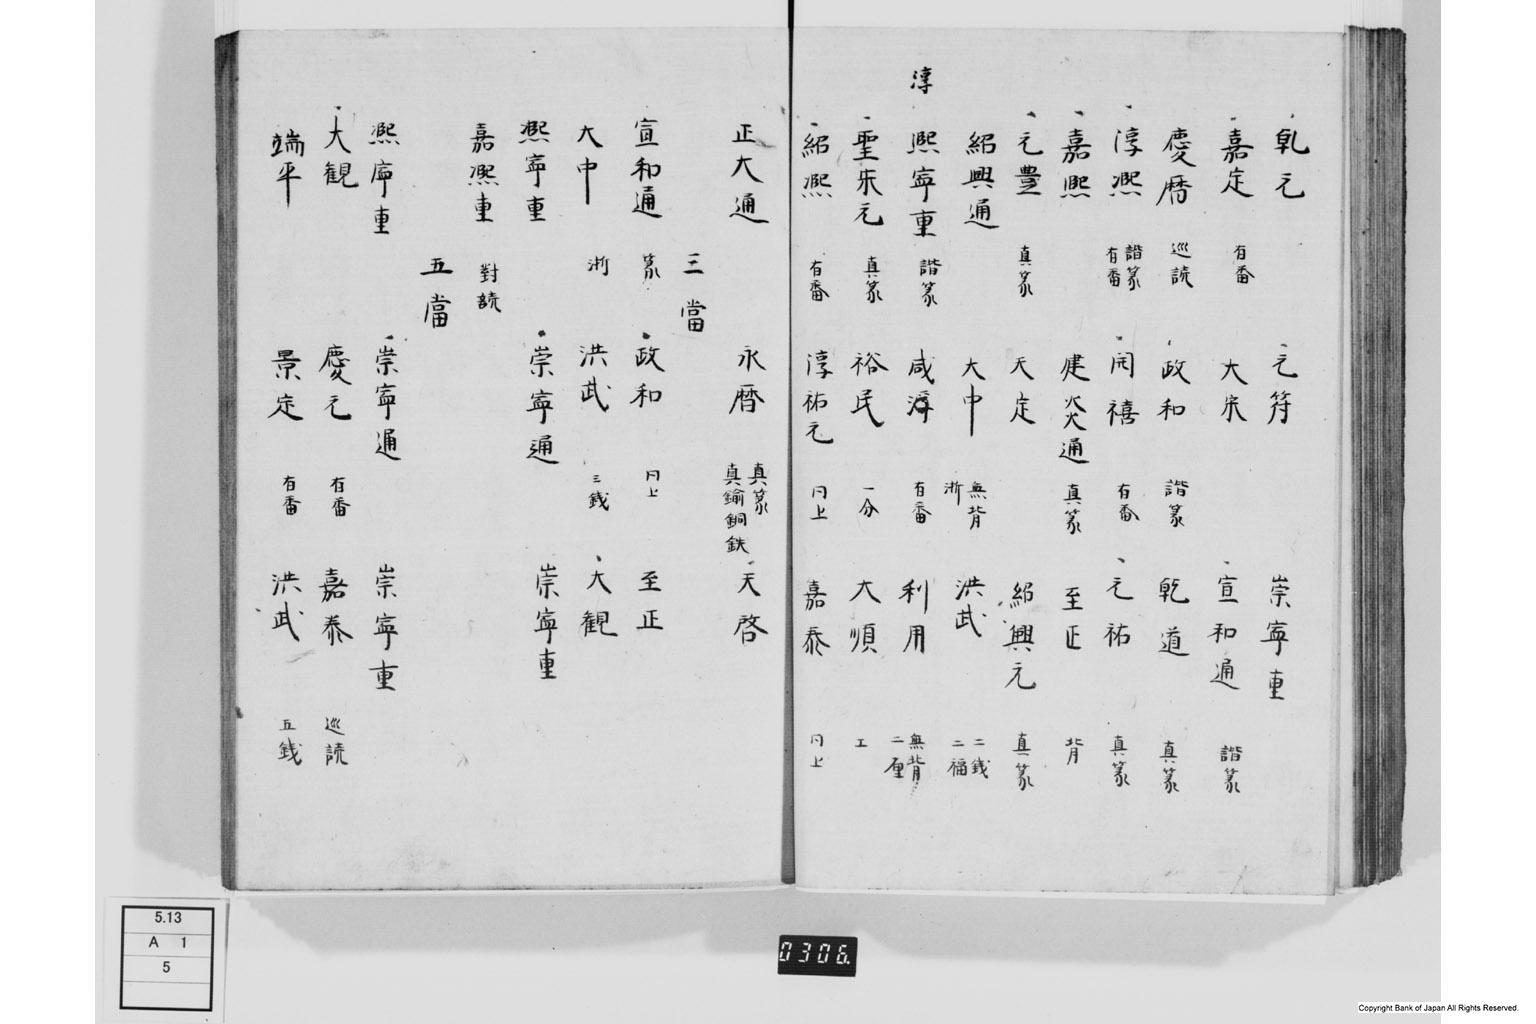 乾元 元符 崇寧重
嘉定 有番 大宋 宣和通 諧篆
慶暦 巡読 政和 諧篆 乾道 真篆
淳熈 諧篆 有番 開禧 有番 元祐 真篆
嘉熈 建炎通 真篆 至正 背
元豊 真篆 天定 紹興元 真篆
紹興通 大中 無背 浙 洪武 二銭 二福
淳
熈寧重 諧篆 咸淳 有番 利用 無背 二厘
聖宋元 真篆 裕民 一分 大順 工
紹熈 有番 淳祐元 同上 嘉泰 同上
正大通 永暦 真篆 真鍮銅鉄 天啓
三當
宣和通 篆 政和 同上 至正
大中 浙 洪武 三銭 大観
熈寧重 崇寧通 崇寧重
嘉熈重 對読
五當
熈寧重 崇寧通 崇寧重
大観 慶元 有番 嘉泰 巡読
端平 景定 有番 洪武 五銭
5.13
A 1
5
0306
Copyright Bank of Japan All Rights Reserved.